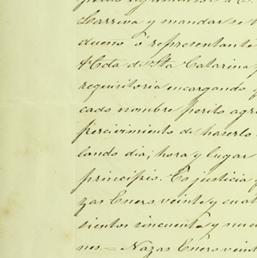 charriva y mandar se
dueno ó representante
Hda de Sta Catarina
requisitoria encargando
cado nombre perito agri
percivimiento de hacerlo
lando dia, hora y lugar
principio. Es justicia
zas Enero veinte y cuat
cientos cincuenta y nuev
nes. — Nazas Enero veint